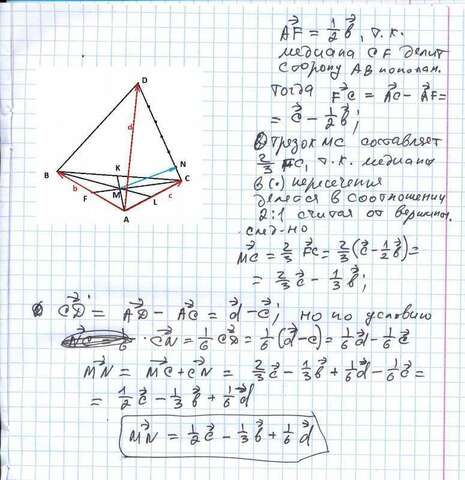 AF = 1/2 b, т.к.
медиана CF делит
сторону AB пополам.
Тогда FC = AC - AF =
= c - 1/2 b;
Отрезок MC составляет
2/3 FC, т.к. медианы
в (·) пересечения
делятся в соотношении
2:1 считая от вершины.
след-но
MC = 2/3 FC = 2/3 (c - 1/2 b) =
= 2/3 c - 1/3 b;
D
d
B
K
N
C
M
b
F
L
c
A
CD = AD - AC = d - c; но по условию
CN = 1/6 CD = 1/6 (d - c) = 1/6 d - 1/6 c
MN = MC + CN = 2/3 c - 1/3 b + 1/6 d - 1/6 c =
= 1/2 c - 1/3 b + 1/6 d
MN = 1/2 c - 1/3 b + 1/6 d